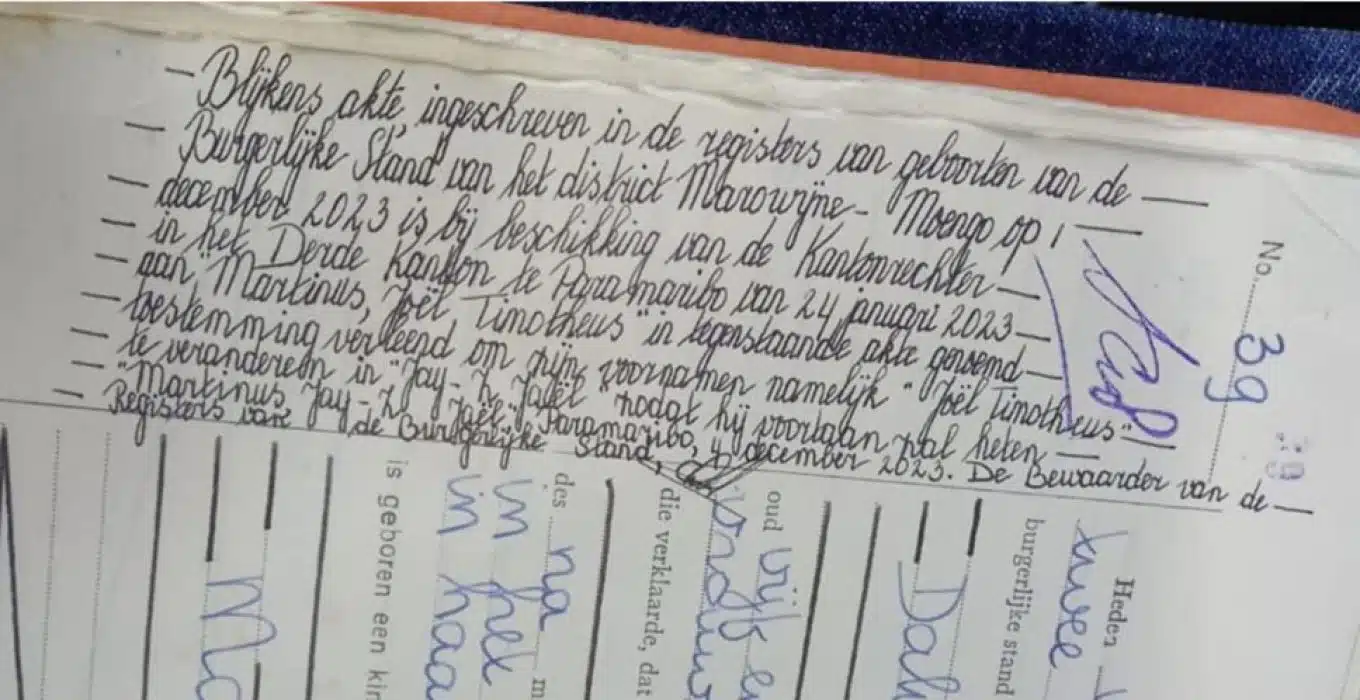 — Blijkens akte, ingeschreven in de registers van geboorten van de —
— Burgerlijke Stand van het district Marowijne - Moengo op 1 —
— december 2023 is bij beschikking van de Kantonrechter —
— in het Derde Kanton te Paramaribo van 24 januari 2023 —
— aan "Martinus, Joël Timotheus" in tegenstaande akte genoemd —
— toestemming verleend om zijn voornamen namelijk "Joël Timotheus" —
— te veranderen in "Jay-Z Jaël" zodat hij voortaan zal heten —
— "Martinus Jay-Z Jaël". Paramaribo, 4 december 2023. De Bewaarder van de —
— Registers van de Burgerlijke Stand,
No. 39
Heden
twee
burgerlijke stand
Dah
oud vijf e
die verklaarde, dat
des na m
in het
in haa
is geboren een kin
Ma